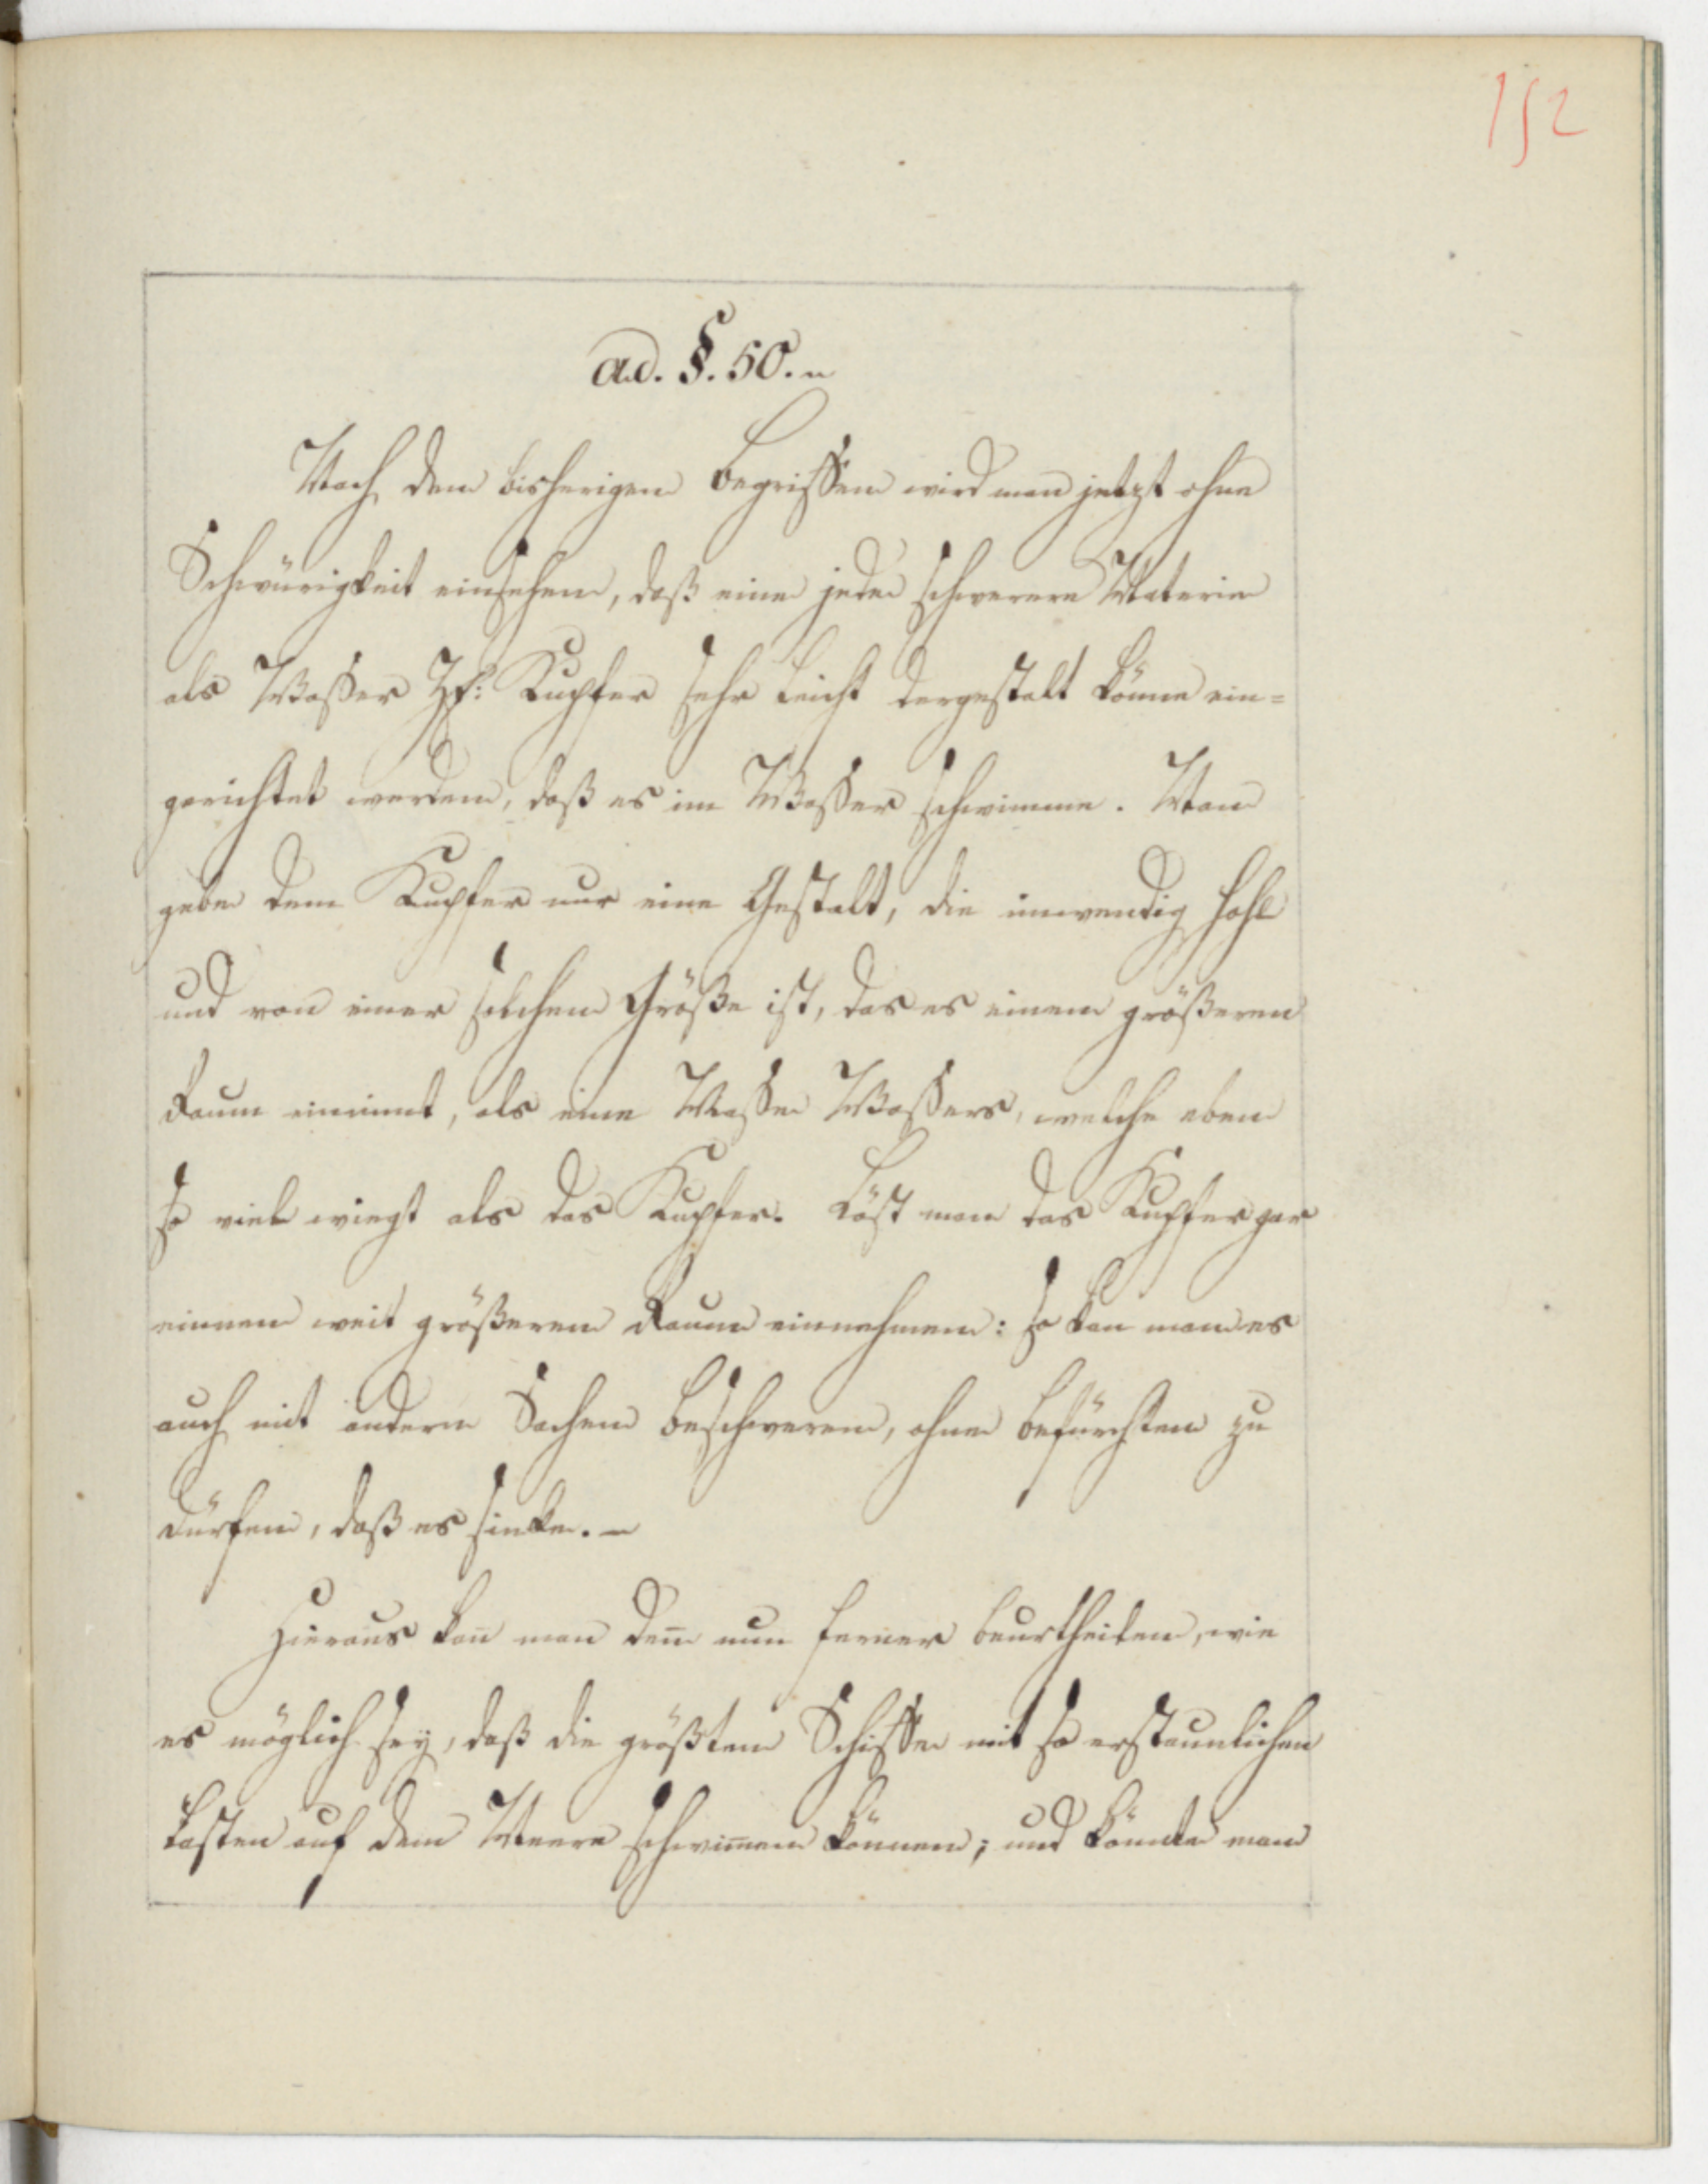 152
ad. §. 50.
Nach den bisherigen Begriffen wird man jetzt ohne
Schwürigkeit einsehen, daß eine jede schwerere Materie
als Wasser Zf: Kupfer sehr leicht dergestalt könne ein=
gerichtet werden, daß es im Wasser schwimme. Man
gebe dem Kupfer nur eine Gestalt, die inwendig hohl
und von einer solchen Größe ist, das es einen größeren
Raum einimt, als eine Masse Wassers, welche eben
so viel wiegt als das Kupfer. Läst man das Kupfer gar
einnen weit größeren Raum einnehmen: so kan man es
auch mit andern Sachen beschweren, ohne befürchten zu
dürfen, daß es sinke. –
Hieraus kan̄ man den̄ nun ferner beurtheilen, wie
es möglich sey, daß die größten Schiffe mit so erstaunlichen
Lasten auf dem Meere schwim̄en können; und könnte man